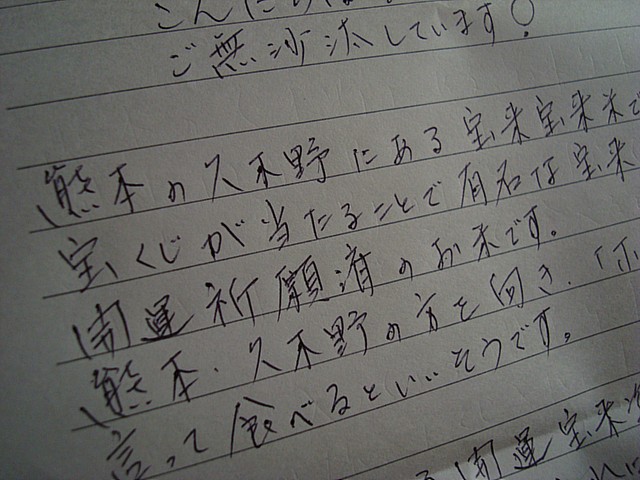 こんにちは
ご無沙汰しています！
熊本の久木野にある宝来宝来米で
宝くじが当たることで有名な宝来
開運祈願済のお米です。
熊本・久木野の方を向き、「ホ
言って食べるといいそうです。
開運宝来